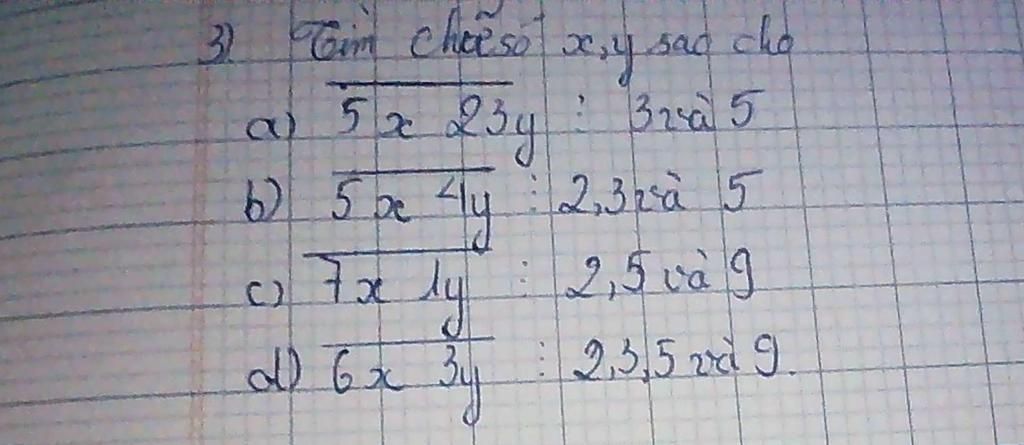 3) Tìm chữ số x, y sao cho
a) 5x 23y ⋮ 3 và 5
b) 5x 4y ⋮ 2,3 và 5
c) 7x 1y ⋮ 2,5 và 9
d) 6x 3y ⋮ 2,3,5 và 9.